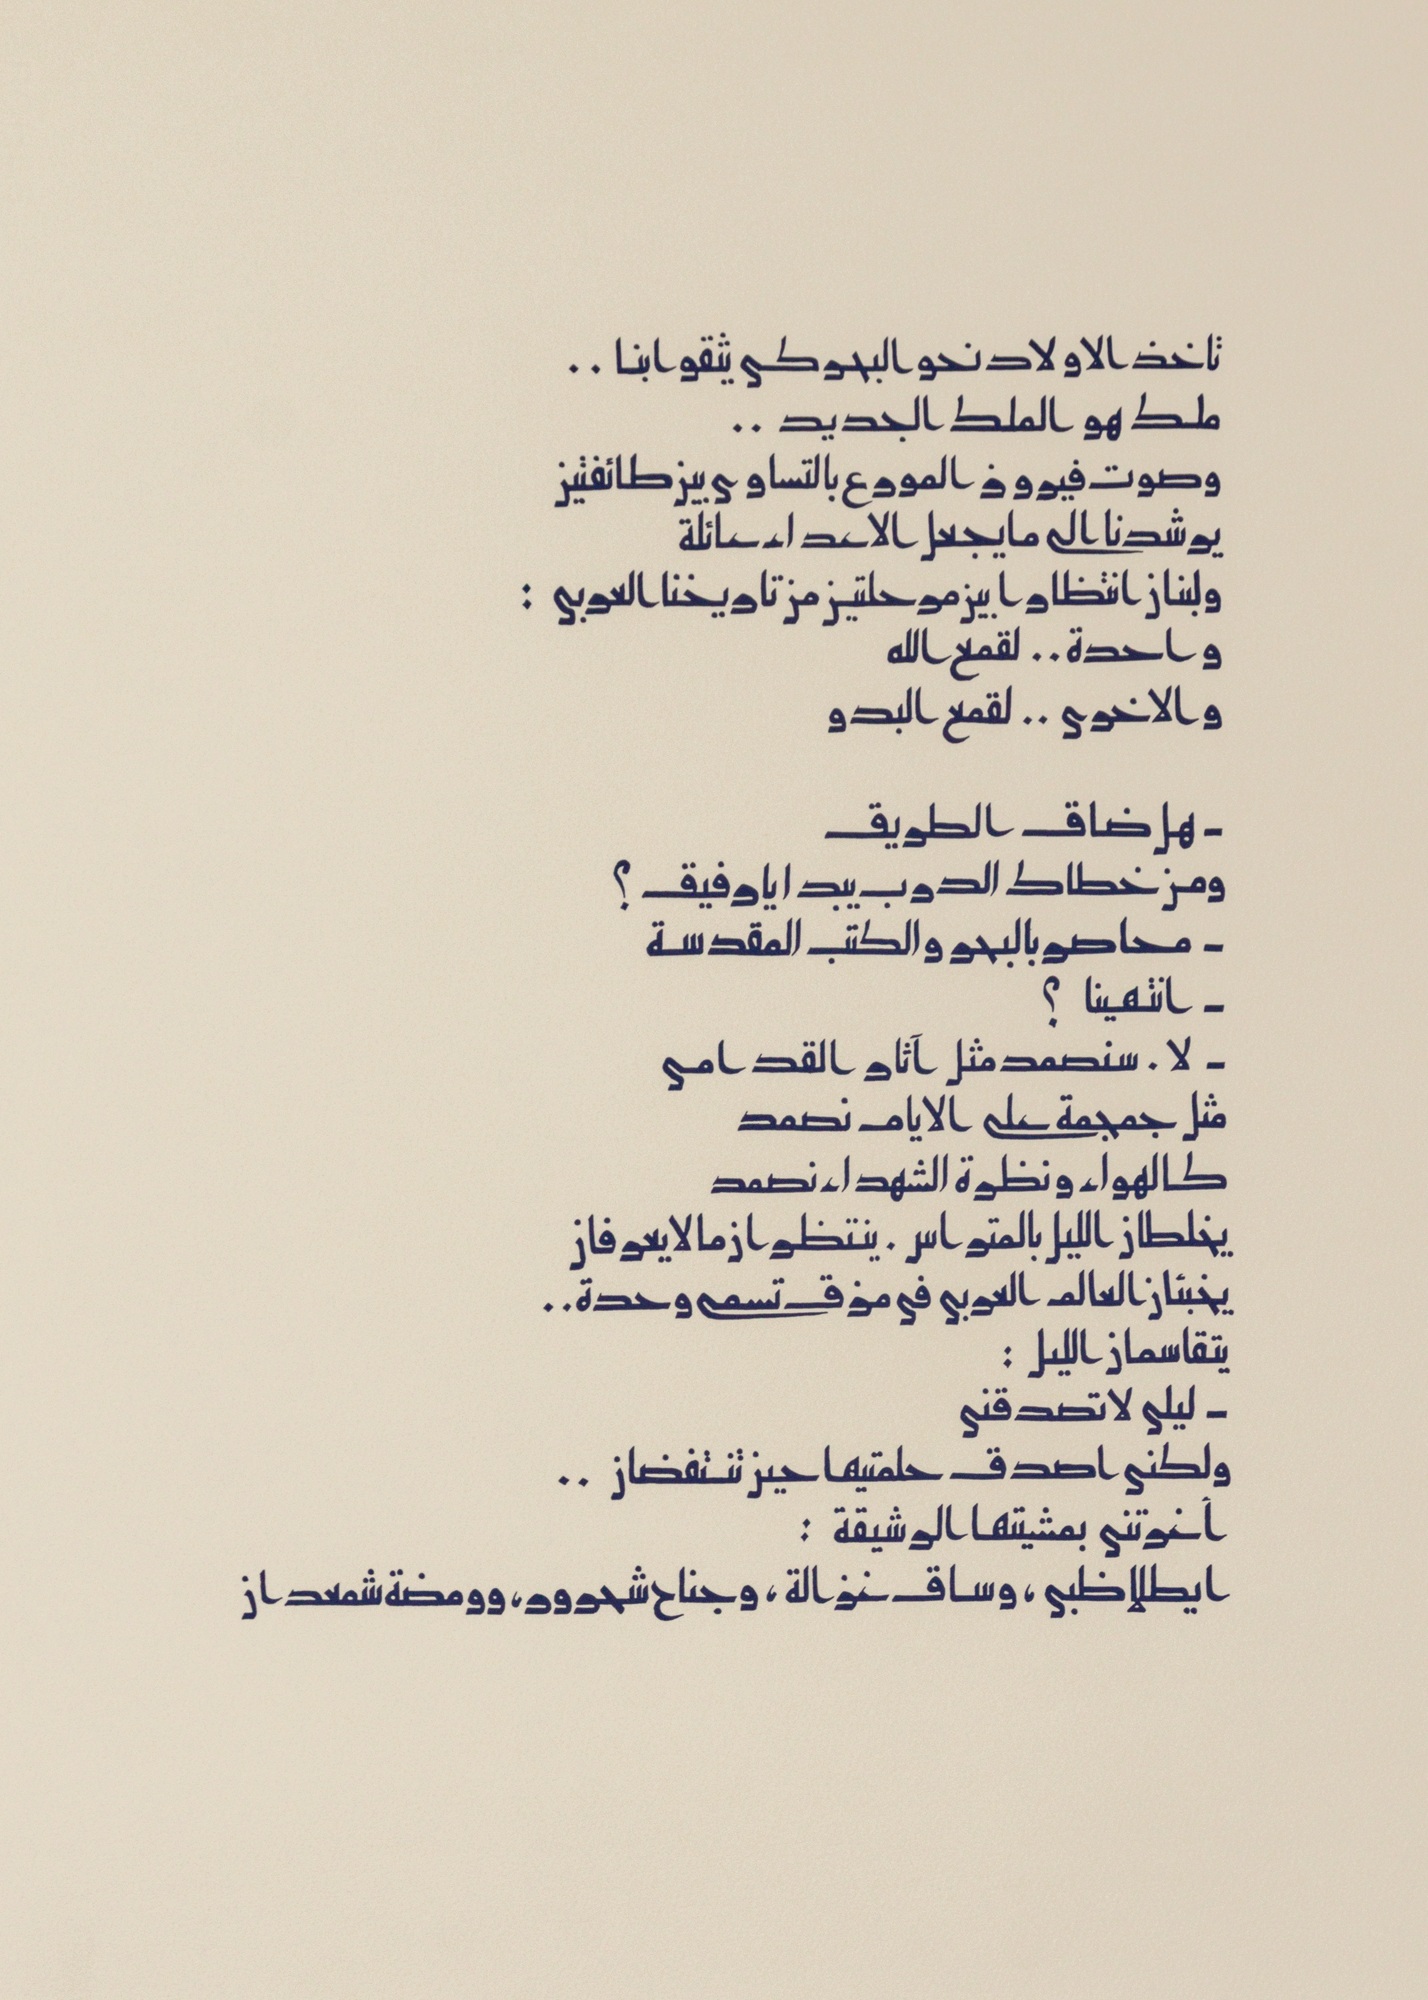 تأخذ الاولاد نحو البحر كي يثقوا بنا ..
ملك هو الملك الجديد ..
وصوت فيروز الموزع بالتساوي بين طائفتين
يرشدنا الى ما يجعل الاعداء عائلة
ولبنان انتظار ا بين مرحلتين من تاريخنا العربي :
واحدة .. لقمع الله
والاخرى .. لقمع البدو
- هل ضاق الطريق
ومن خطاك الدرب يبدا يا رفيق ؟
- محاصر بالبحر والكتب المقدسة
- انتهينا ؟
- لا . سنصمد مثل آثار القدامى
مثل جمجمة على الايام نصمد
كالهواء ونظرة الشهداء نصمد
يخلطان الليل بالمتراس . ينتظران ما لا يعرفان
يخبئان العالم العربي في مزق تسمى وحدة ..
يتقاسمان الليل :
- ليلى لا تصدقني
ولكني اصدق حلمتيها حين تنتفضان ..
أغرتني بمشيتها الرشيقة :
ايطلا ظبي ، وساق غزالة ، وجناح شحرور ، وومضة شمعدان